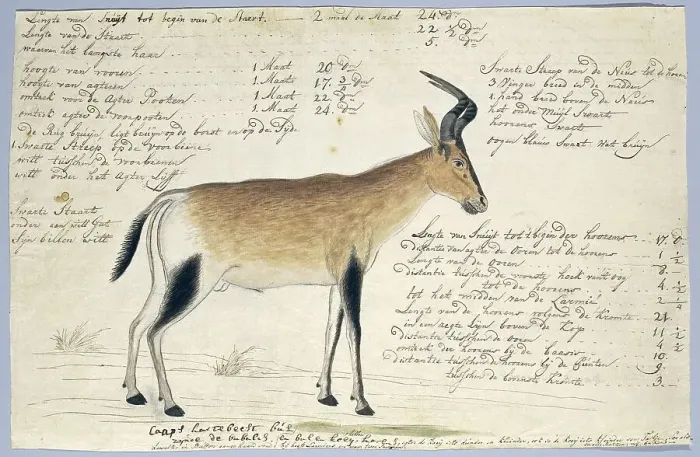 Lengte van Snuijt tot begin van de Staert. 2 maal de Maat 24. Dm
Lengte van de Staart 22 1/2 Dm
waarvan het langste haar 5. Dm
hoogte van vooren 1 Maat 20 Dm
hoogte van agteren 1 Maat 17. 3/4 Dm
omtrek voor de Agter Pooten 1 Maat 22 Dm
omtrek agter de voorpooten 1 Maat 24. Dm
de Rug bruijn, ligt bruijn op de borst en op de Syde
1 Swarte Streep op de voorbiene
witt tusschen de voorbienen
witt onder het Agter Lijff
Swarte Staart
onder aan witt Gatt
Syn billen witt
Swarte Streep van de Neus tot de hoorens
3 Vinger breed in de midden
1 hand breed boven de Neus
het onder Muijl Swart
hoorens Swart
oogen blauw Swart Nat bruijn
Lengte van Snuijt tot t begin der hoorens 17. D
distantie van agter de Ooren tot de hoorens 1 1/2
Lengte van de Ooren 8.
distantie tusschen de voorste hoek van t oog
tot de hoorens 4. 1/2
tot het midden van de Larmié 2 1/4
Lengte van de hoorens volgens de Kromte 21
in een regte Lijn boven de Kop 11 1/2
distantie tusschen de ooren 4. 1/2
omtrek der hoorens bij de baasis 10.
distantie tusschen de hoorens bij de Punten 9.
tusschen de bovenste Kromte 3.
Caaps Hartebeest
de bubalis